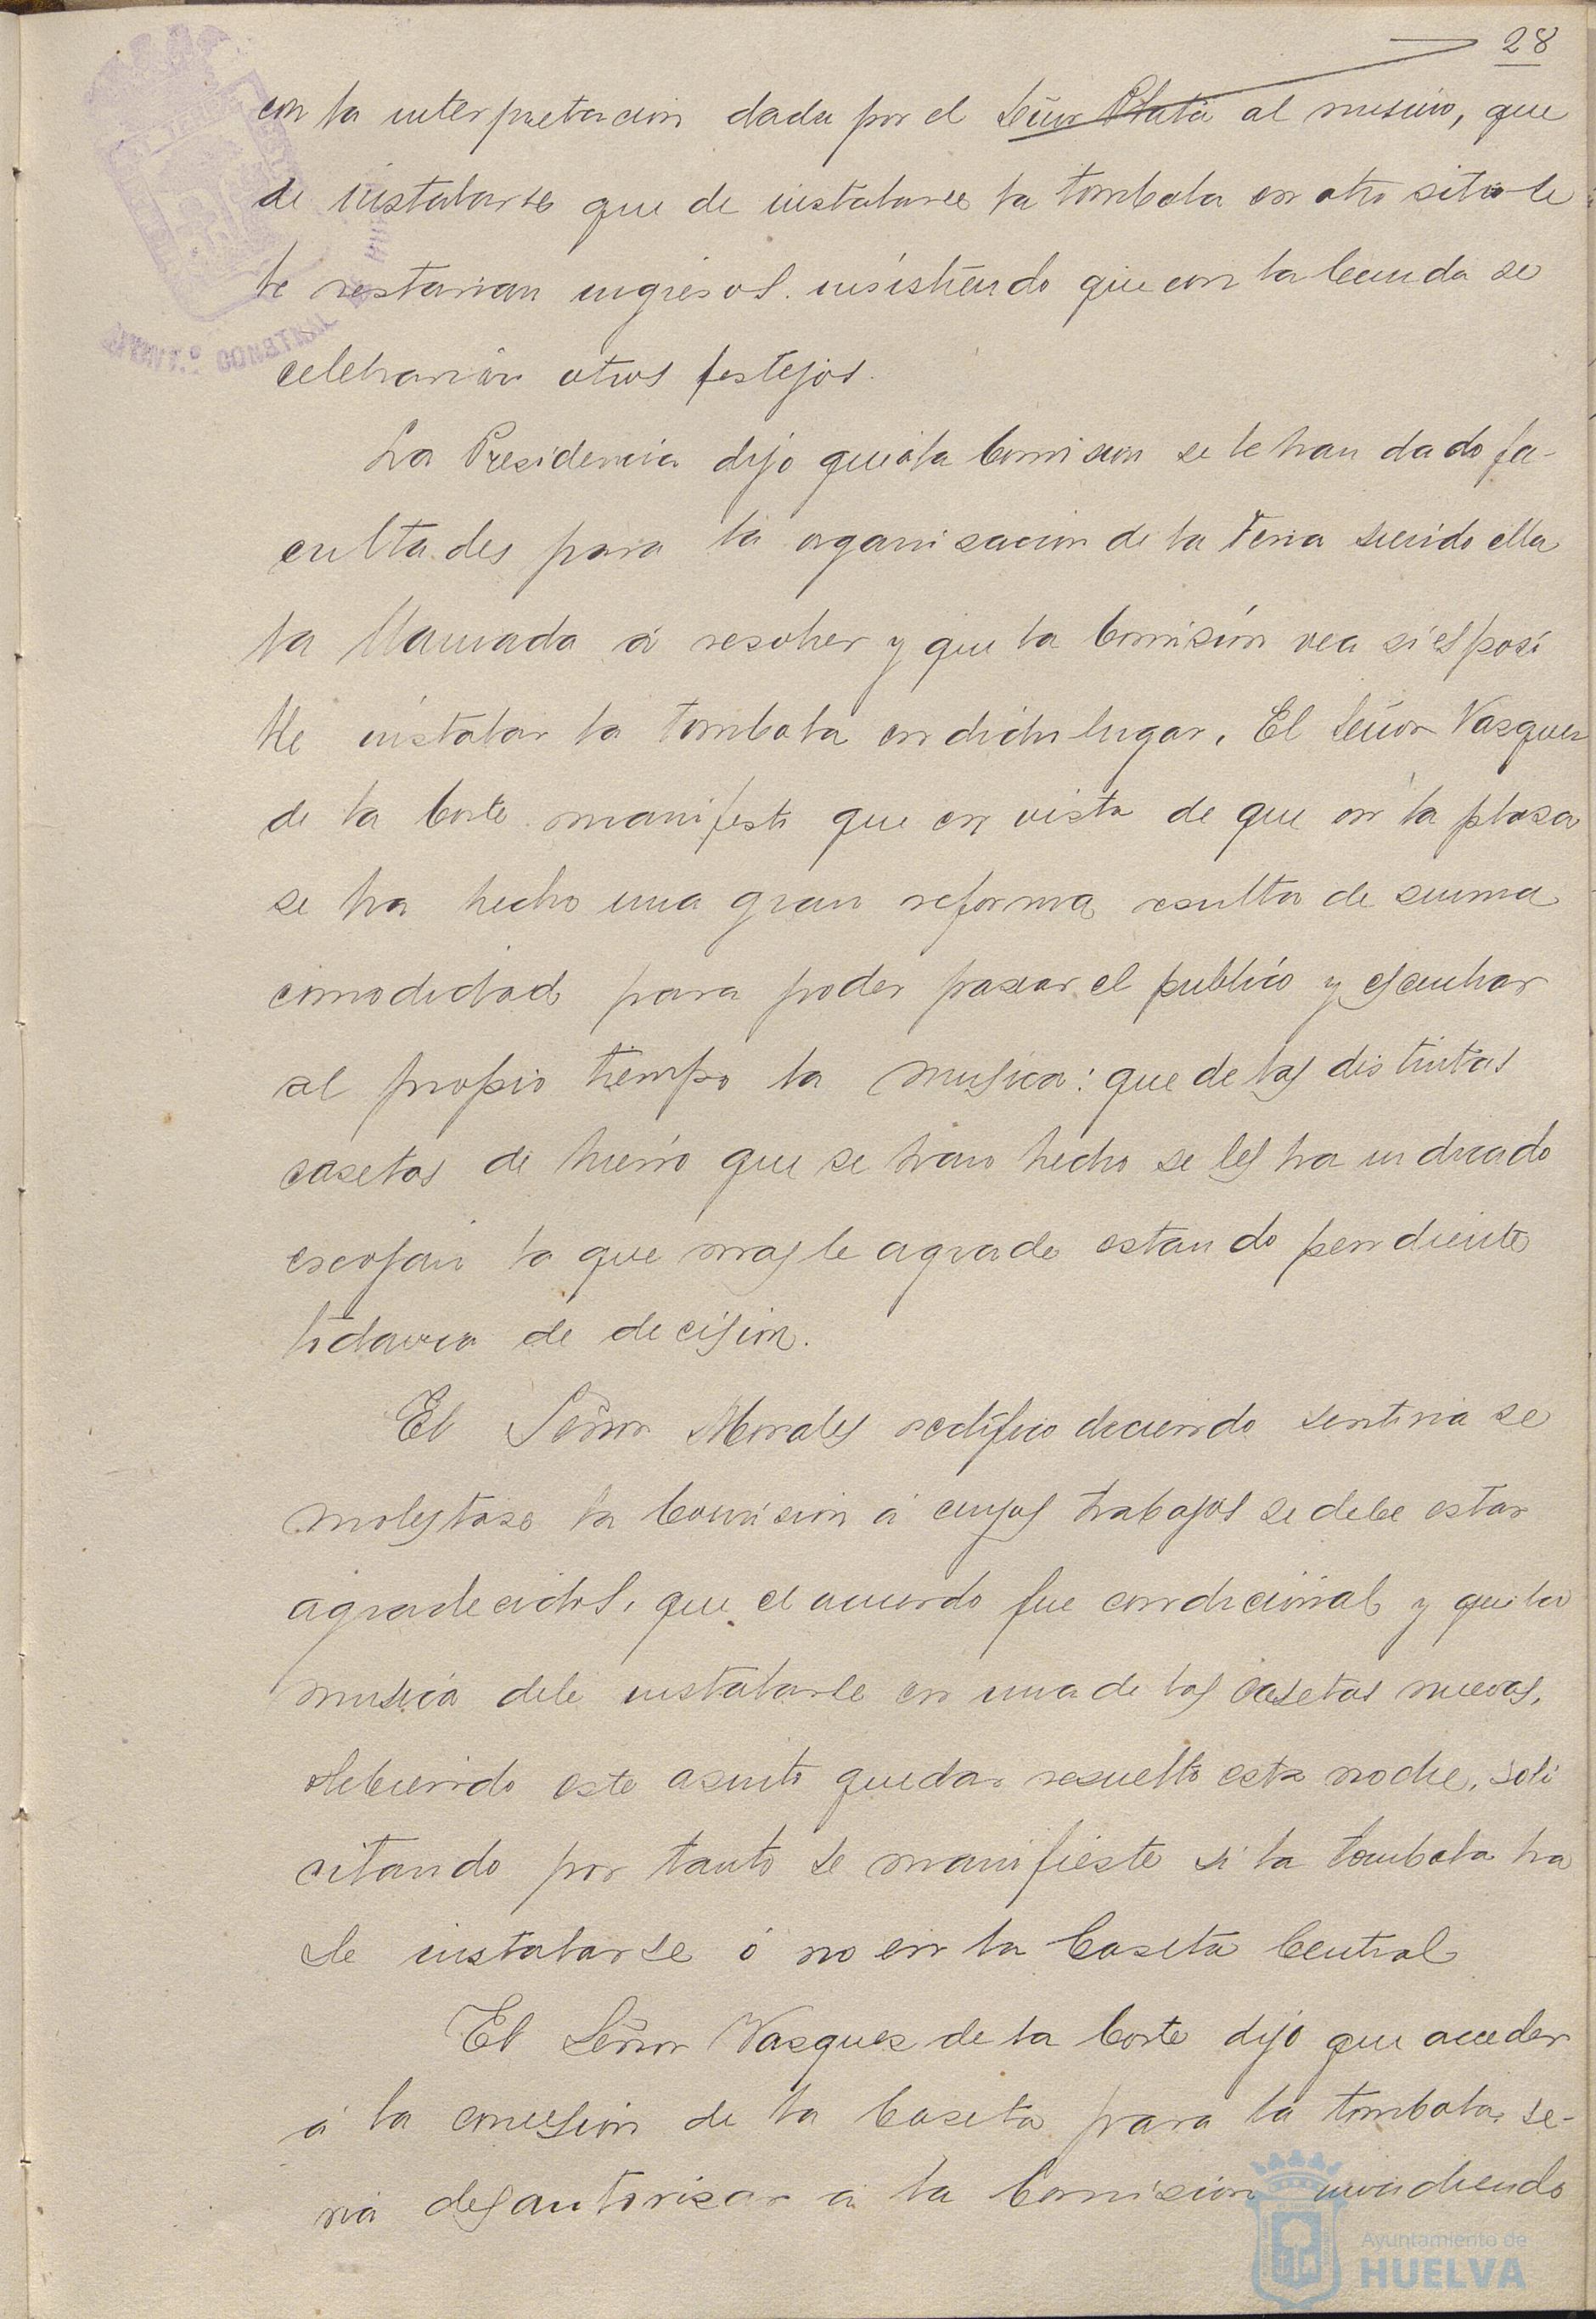 28
con la interpretacion dada por el Señor Plata al mismo, que
de instalarse que de instalarse la tombola en otro sitio le
le restarian ingresos insistiendo que con la Banda se
celebrarian otros festejos.
La Presidencia dijo que á la Comision se le han dado fa-
cultades para la organisacion de la Feria siendo ella
la llamada á resolver y que la Comisión vea si es posi
ble instalar la tombola en dicho lugar. El Señor Vasquez
de la Corte manifestó que en vista de que en la plasa
se ha hecho una gran reforma resulta de suma
comodidad para poder pasear el publico y escuchar
al propio tiempo la musica: que de las distintas
casetas de hierro que se han hecho se les ha indicado
escojan la que mas le agrade estando pendiente
todavia de decision.
El Señor Morales rectifico diciendo sentiria se
molestase la Comision á cuyos trabajos se debe estar
agradecidos, que el acuerdo fue condicional y que la
musica debe instalarse en una de las casetas nuevas,
debiendo este asunto quedar resuelto esta noche, soli
citando por tanto se manifieste si la tombola ha
de instalarse ó no en la Caseta Central
El Señor Vasquez de la Corte dijo que acceder
á la concesión de la Caseta para la tombola se-
ria desautorisar á la Comision invadiendo
Ayuntamiento de
HUELVA